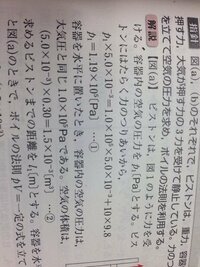 指針 図(a), (b)のそれぞれで、ピストンは、重力、容器
押す力、大気が押す力の3力を受けて静止している。力のつ
を立てて空気の圧力を求め、ボイルの法則を利用する。
解説 【図(a)】 ピストンは、図1のように力を受
ける。容器内の空気の圧力をp₁[Pa]とする。ピス
トンにはたらく力のつりあいから、
p₁×5.0×10⁻³=1.0×10⁵×5.0×10⁻³+10×9.8
p₁=1.19×10⁵[Pa] …①
容器を水平に置いたとき、容器内の空気の圧力は、
大気圧と同じ1.0×10⁵Paである。空気の体積は、
(5.0×10⁻³)×0.30=1.5×10⁻³[m³] …②
求めるピストンまでの距離をl₁[m]とする。容器を水
と図(a)のときで、ボイルの法則 pV=一定の式を立て